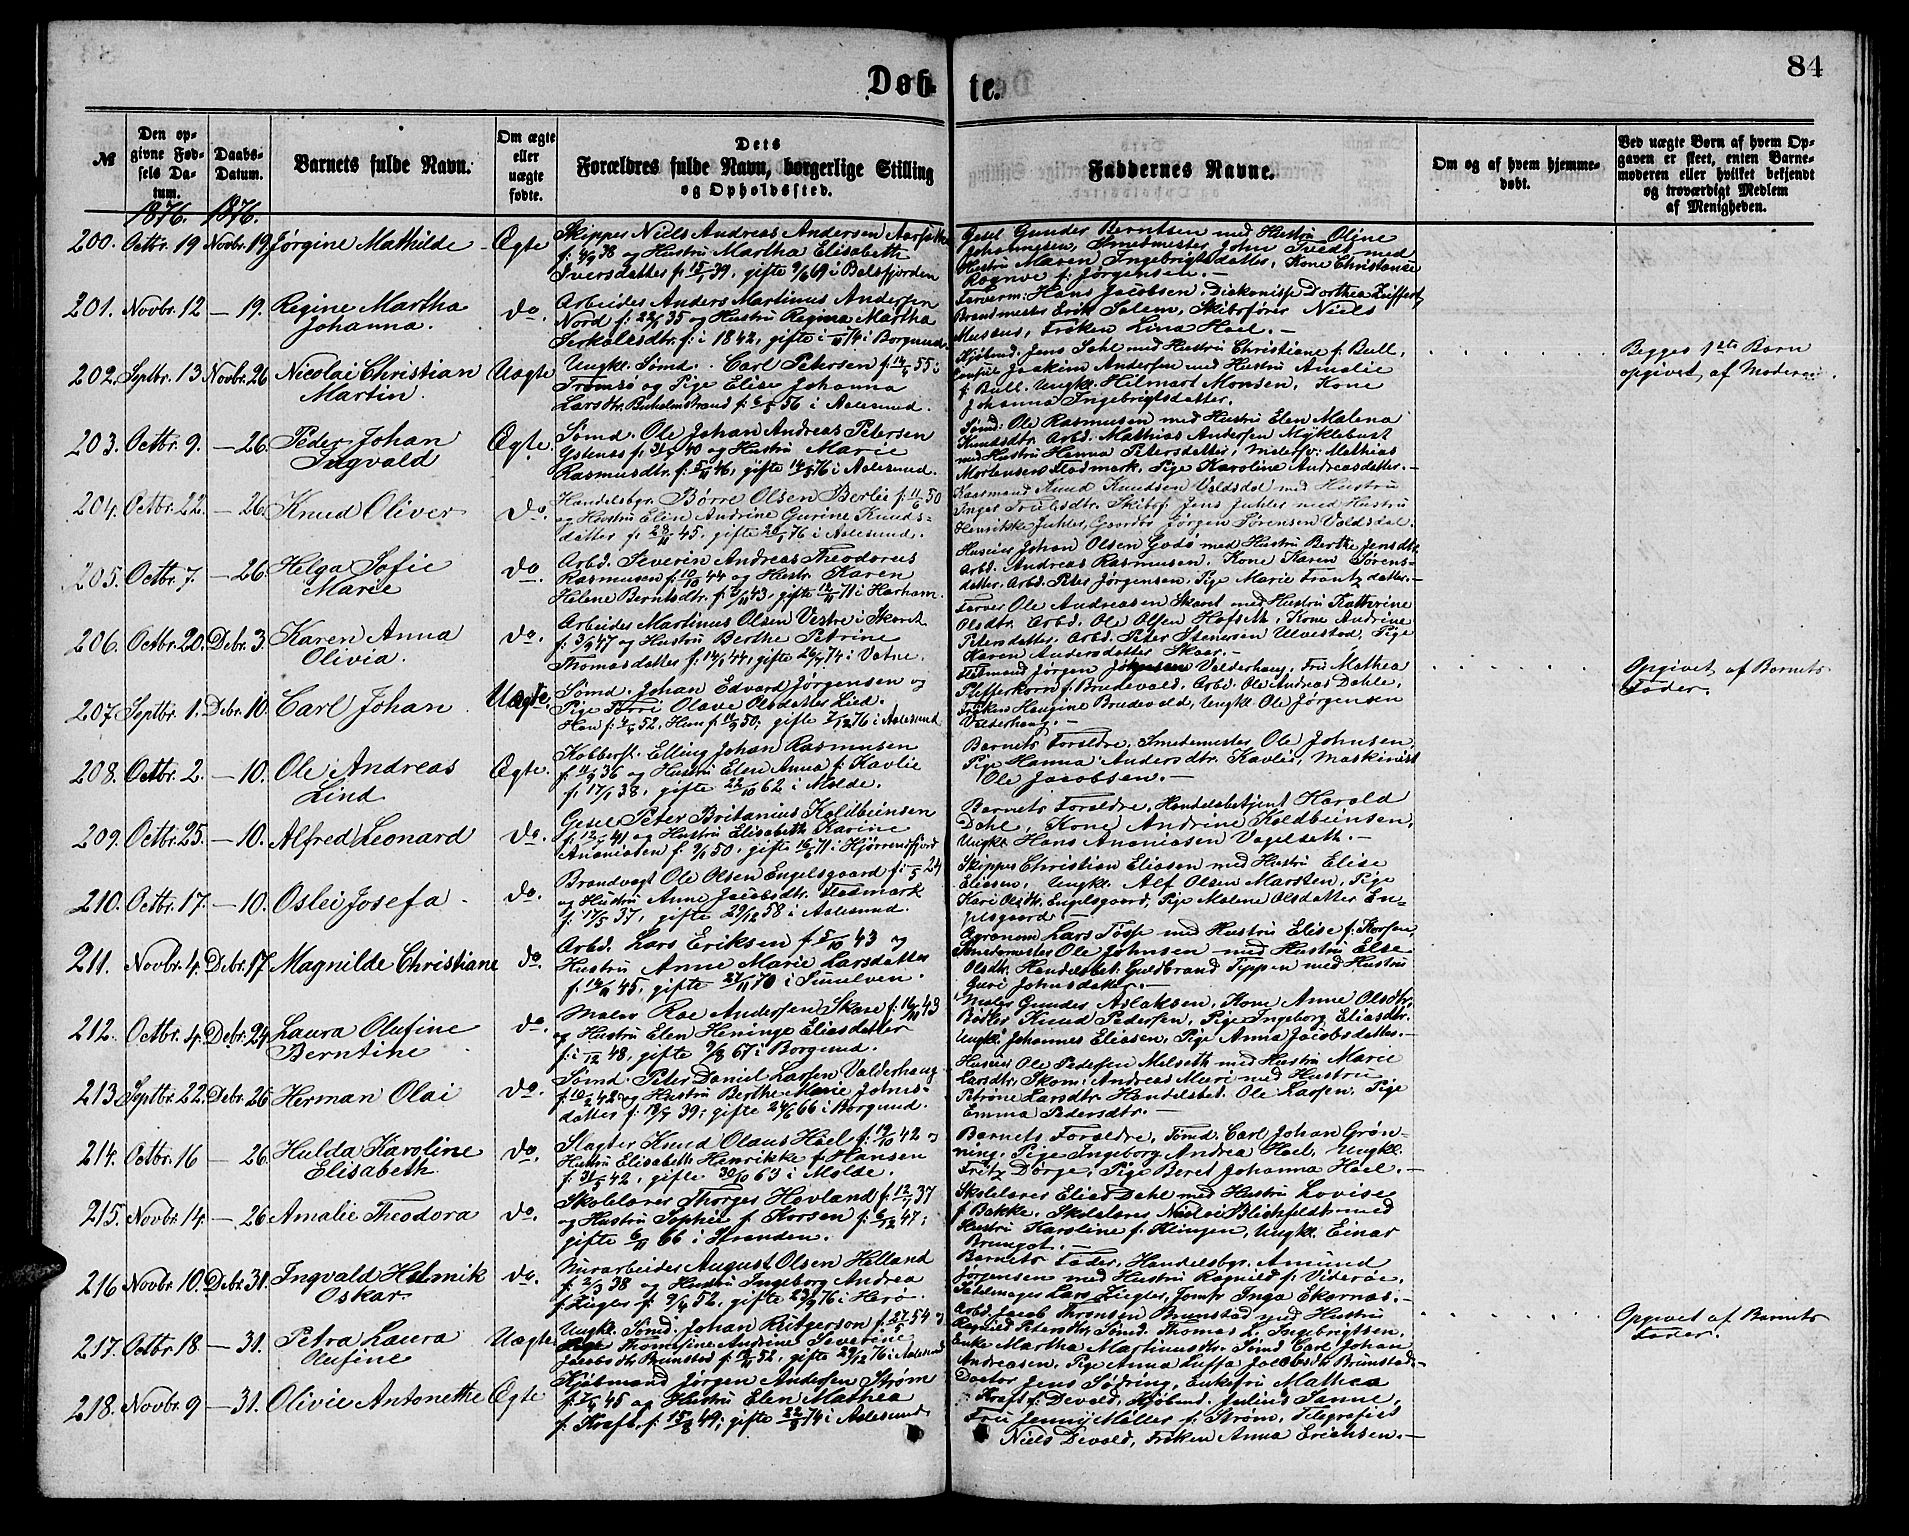 84
Døbte.
№
Den opgivne Fødsels Datum.
Daabs-Datum.
Barnets fulde Navn.
Om ægte eller uægte fødte.
Dets Forældres fulde Navn, borgerlige Stilling og Opholdssted.
Faddernes Navne.
Om og af hvem hjemmedøbt.
Ved uægte Børn af hvem Opgaven er skeet, enten Barnemoderen eller hvilket bekjendt og troværdigt Medlem af Menigheden.
1876. 1876.
200. Octbr. 19 Novbr. 19 Jørgine Mathilde Ægte
Skipper Niels Andreas Andersen
og Hustru Martha Elisabeth
Iversdatter f. 15/2 39, gifte 9/6 69 i Balsfjorden
Gesel Gunder Berntsen med Hustru Oline
Johannesen, Smedmester John Tvedt med
Hustru Maren Ingebrigtsdatter, Kone Christanse
Ragnve f. Jørgensen.
201. Novbr. 12 — 19. Regine Martha Johanna. do.
Arbeider Anders Martinus Andersen
Nord f. 22/1 35 og Hustru Regina Martha
f: i 1842, gifte 74 i Borgund.
Farverm: Hans Jacobsen, Diakonisse Dorthea
Brandmester Erik Salem, Skibsfører Niels
Musæus, Frøken Lina Hoel.
202. Septbr. 13 Novbr. 26 Nicolai Christian Martin. Uægte
Ungkl. Sømd. Carl Petersen f. 55 i
Tromsø og Pige Elise Johanna
Larsdtr. f. 6/5 56 i Aalesund.
Kjøbmd. Jens Dahl med Hustru Christiane f. Bull,
Consul Joakim Andersen med Hustru Amalie
f. Bull. Ungkl. Hilmart Monsen, Kone
Johanna Ingebrigtsdatter.
Begges 1ste Barn
opgivet af Moderen.
203. Octbr. 9. — 26. Peder Johan Ingvald Ægte.
Sømd. Ole Johan Andreas Petersen
Ystenes f. 40 og Hustru Marie
Rasmusdtr. f. 5/11 46, gifte 14/5 76 i Aalesund.
Sømd: Ole Rasmusen med Hustru Elen Malena
Knudsdtr. Arbd. Mathias Andersen Myklebust
med Hustru Hanna Petersdatter,
Mortensen Stadmark, Pige Karoline Andreasdatter.
204. Octbr. 22. — 26. Knud Oliver do.
Handelsbgr. Børre Olsen Berlie f. 11/6 50
og Hustru Elen Andrine Gurine Knuds-
datter f. 29/11 45, gifte 76 i Aalesund.
Knud Knudsen Valdsdal med Hustru
Inger Skibsf. Jens Juhler med Hustru
Henrikke Juhler, Gaardbr. Jørgen Sørensen Valdsdal.
205. Octbr. 7 — 26. Helga Sofie Marie do.
Arbd. Severin Andreas Theodorus
Rasmusen f. 10/10 44 og Hustr. Karen
Helene Berntsdtr. f. 43, gifte 12/11 71 i Harham.
Husmr. Johan Olsen Godø med Hustru Berthe Jensdtr.
Arbd. Andreas Rasmusen. Kone Karen Sørens-
datter. Arbd. Peter Jørgensen. Pige Marie Frantzdatter.
206. Octbr. 20. Debr. 3. Karen Anna Olivia. do.
Arbeider Martinus Olsen Vestre i Skoret
f. 3/9 47 og Hustru Berthe Petrine
Thomasdatter f. 14/1 44, gifte 26/7 74 i Vatne.
Farver Ole Andreasen Skaret med Hustru Kathrine
Olsdtr. Arbd. Ole Olsen Hofseth, Kone Andrine
Petersdatter, Arbd. Peter Stenersen Ulvestad, Pige
Karen Andersdatter Skaar.
207. Septbr. 1. Debr. 10. Carl Johan Uægte.
Sømd. Johan Edvard Jørgensen og
Pige Olave Olsdatter Lied.
Han f. 52, Hun f. 50, gifte 7/12 76 i Aalesund
Jørgen Johnsen Valderhaug, Fru Mathea
Pfifferkorn f. Brudevold, Arbd. Ole Andreas Dahle,
Frøken Haugine Brudevold, Ungkl. Ole Jørgensen
Valderhaug.
Opgivet af Barnets
Fader.
208. Octbr. 2. — 10. Ole Andreas Lind Ægte.
Kobbersl. Elling Johan Rasmusen
f. 11/9 36 og Hustru Elen Anna f. Kavlie
f. 17/1 38, gifte 22/10 62 i Molde.
Barnets Forældre, Smedemester Ole Johnsen,
Pige Hanna Andersdtr. Kavlie, Maskinist
Ole Jacobsen.
209. Octbr. 25. — 10. Alfred Leonard do.
Gesel Peter Britanius Koldbeinsen
f. 12/7 41 og Hustru Elisabeth Karine
f. 9/1 50, gifte 16/6 71 i Hjørrendfjord
Barnets Forældre, Handelsbetjent Harald
Dahl, Kone Andrine Koldbeinsen,
Ungkl. Hans Ananiasen Vagelseth.
210. Octbr. 17. — 10. Oslei Josefa do.
Brandvagt Ole Olsen Engelsgaard f. 24
og Hustru Anne Jacobsdtr. Stadmark
f. 17/5 37, gifte 29/12 58 i Aalesund.
Skipper Christian Eliasen med Hustru Elise
Eliasen, Ungkl. Alf Olsen Marsten, Pige
Kari Olsdtr. Engelsgaard, Pige Malene Olsdatter En-
gelsgaard
211. Novbr. 4. Debr. 17. Magnilde Christiane do.
Arbd. Lars Eriksen f. 5/10 43 og
Hustru Anne Marie Larsdatter
f. 45, gifte 27/11 70 i Sunelven.
Agronom Lars Tosse med Hustru Elise f. Korsen,
Smedemester Ole Johnsen med Hustru Else
Olsdtr. Handelsbet. Guldbrand Tippen med Hustru
Guri Johnsdatter.
212. Octbr. 4. Debr. 24. Laura Olufine Berntine do.
Maler Roe Andersen Skare f. 16/11 43
og Hustru Elen Heninge Eliasdatter
f. 1/12 48, gifte 9/8 67 i Borgund.
Maler Gunder Aslaksen, Kone Anne Olsdtr,
Bødker Knud Pedersen, Pige Ingeborg Eliasdtr.
Ungkl. Johannes Eliasen, Pige Anna Jacobsdatter.
213. Septbr. 22. Debr. 26 Herman Olai do.
Sømd. Peter Daniel Larsen Valderhaug
42 og Hustru Berthe Marie Johns-
datter f. 39; gifte 24/6 66 i Borgund.
Husmr. Ole Pedersen Melseth med Hustru Marie
Larsdtr. Skom: Andreas Muri med Hustru
Petrine Larsdtr. Handelsbet. Ole Larsen, Pige
Emma Pedersdtr.
214. Octbr. 16 — 26. Hulda Karoline Elisabeth do.
Slagter Knud Olaus Hoel f. 19/10 42 og
Hustru Elisabeth Henrikke f. Hansen
f. 31/5 42, gifte 30/10 63 i Molde.
Barnets Forældre, Sømd. Carl Johan Grøn-
ning, Pige Ingeborg Andrea Hoel, Ungkl.
Fritz Dørge, Pige Beret Johanna Hoel.
215. Novbr. 14. — 26 Amalie Theodora do.
Skolelærer Thorger Hovland f. 12/7 37
og Hustru Sophie f. Korsen f. 6/12 47;
gifte 6/11 66 i Stranden.
Skolelærer Elias Dahl med Hustru Lovise
f. Bakke, Skolelærer Nicolai Blichfeldt med
Hustru Karoline f. Klingen, Ungkl. Einar
Brungot.
216 Novbr. 10. Debr. 31. Ingvald Helmik Oskar do.
Murarbeider August Olsen Helland
f. 2/3 38 og Hustru Ingeborg Andrea
f. Zigler f. 52, gifte 76 i Herø.
Barnets Fader, Handelsbgr. Amund
Jørgensen med Hustru Ragnild f. Viderøe,
Lars Zigler, Jomfr. Inga Ekornæs.
217. Octbr 18 — 31. Petra Laura Olufine Uægte
Ungkl. Sømd. Johan Rütgerson f. 54 og
Pige Thomasine Andrine Severine
Jacobsdtr. Brunstad f. 52, gifte 29/12 76 i Aalesund
Arbd. Jacob Thronsen Brunstad med Hustru
Ragnild Petersdtr, Sømd. Thomas L. Ingebrigtsen,
Enke Martha Martinusdtr. Sømd Carl Johan
Andreasen, Pige Anna Luffa Jacobsdtr Brunstad.
Opgivet af Barnets
Fader.
218. Novbr. 9 — 31. Olivie Antonette Ægte
Kjøbmand Jørgen Andersen Strøm
45 og Hustru Elen Mathea
f. Kraft f. 15/8 49; gifte 22/5 74 i Aalesund
Doctor Jens Sødring, Enkefru Mathea
Kraft f. Devold, Kjøbmd. Julius Sanne,
Fru Jenny Møller f. Strøm, Telegrafist
Niels Devold, Frøken Anna Erichsen.